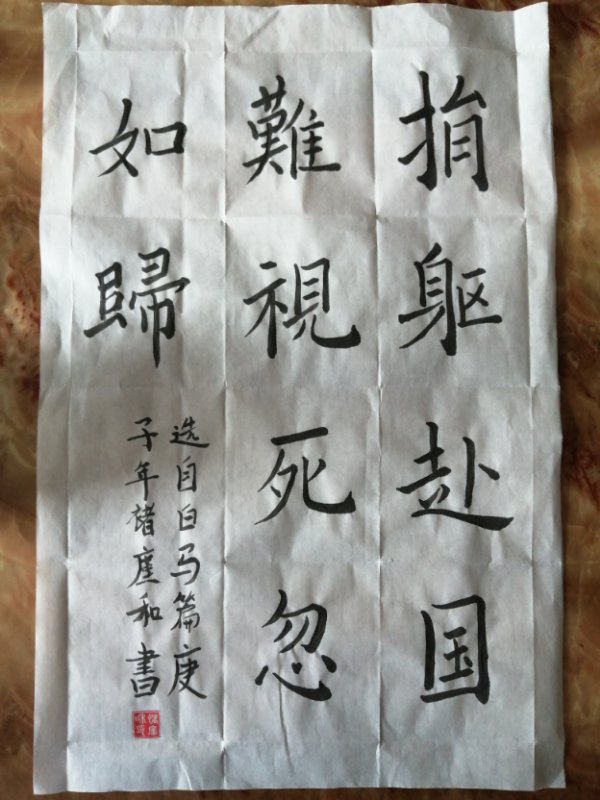 捐躯赴国
難視死忽
如歸
选自白马篇庚
子年和書